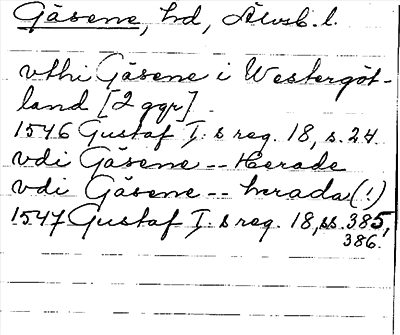 Gäsene, hd, Älvsb. l.
vthi Gäsene i Westergöt-
land [2 ggr]
1546 Gustaf I:s reg. 18, s. 24
vdi Gäsene -- Herade
vdi Gäsene -- herada (!)
1547 Gustaf I:s reg. 18, ss. 385,
386.